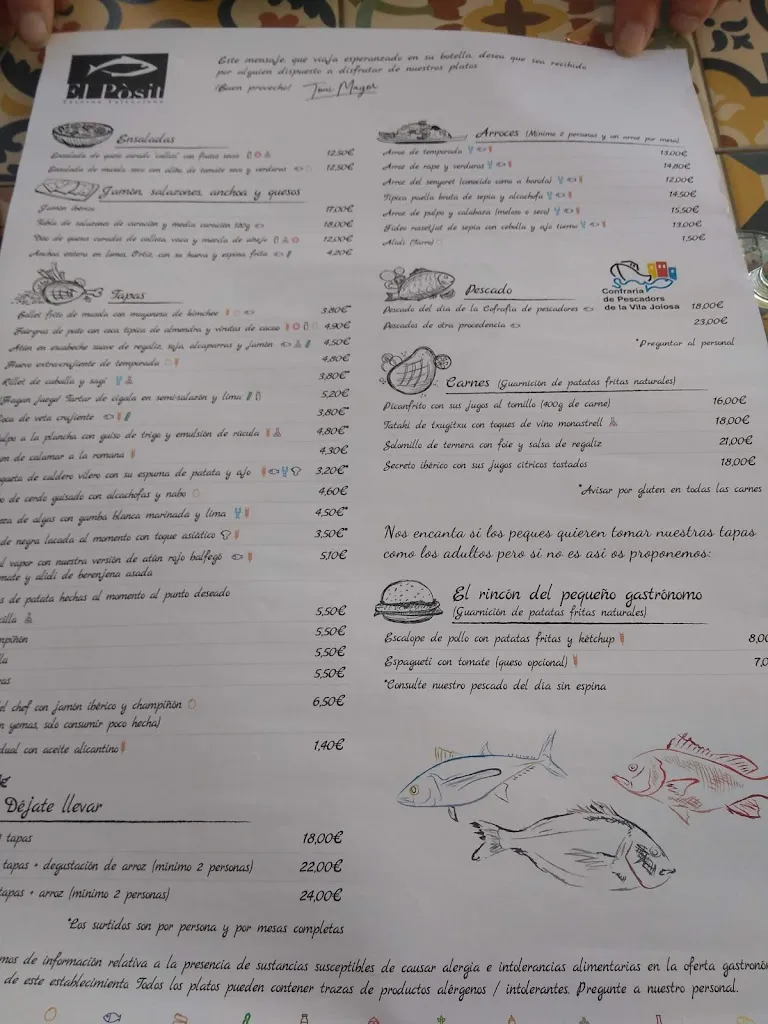 El Pòsit
Taverna Valenciana
Este mensaje, que viaja esperanzado en su botella, desea que sea recibido
por alguien dispuesto a disfrutar de nuestros platos
¡Buen provecho! Toni Mayor
Ensaladas
Ensalada de queso curado con frutos secos 12,50€
Ensalada de mezcla seca con aliño de tomate seco y verduras 12,50€
Jamón, salazones, anchoa y quesos
Jamón ibérico 17,00€
Tabla de salazones de curación y media curación 120g 18,00€
Duo de quesos curados de callosa, vaca y mezcla de abejo 12,00€
Anchoa entera en lama, Ortiz, con su hueva y espina frita 4,20€
Tapas
Bollet frito de mezcla con mayonesa de kimchee 3,80€*
Fuagras de pato con coca típica de almendra y virutas de cacao 4,90€
Atún en escabeche suave de regaliz, soja, alcaparras y jamón 4,50€
Huevo extraviajente de temporada 4,80€
Rillet de caballa y sagí 3,80€*
¡Hagan juego! Tartar de cigala en semi-salazón y lima 5,20€
Coca de veta crujiente 3,80€*
ulpo a la plancha con guiso de trigo y emulsión de rúcula 4,80€*
de calamar a la romana 4,30€
queta de caldero vilero con su espuma de patata y ajo 3,20€*
o de cerdo guisado con alcachofas y nabo 4,60€
de algas con gamba blanca marinada y lima 4,50€*
de negra lacada al momento con toque asiático 3,50€*
l vapor con nuestra versión de atún rojo balfegó 5,10€
mate y alidi de berenjena asada
s de patata hechas al momento al punto deseado
cilla 5,50€
mpiñón 5,50€
lla 5,50€
as 5,50€
el chef con jamón ibérico y champiñón 6,50€
n yemas, solo consumir poco hecha)
dual con aceite alicantino 1,40€
Déjate llevar
tapas 18,00€
tapas + degustación de arroz (mínimo 2 personas) 22,00€
tapas + arroz (mínimo 2 personas) 24,00€
*Los surtidos son por persona y por mesas completas
Arroces (Mínimo 2 personas y un arroz por mesa)
Arroz de temporada 13,00€
Arroz de rape y verduras 14,80€
Arroz del senyoret (conocido como a banda) 12,00€
Típica paella bruta de sepia y alcachofa 14,50€
Arroz de pulpo y calabaza (meloso o seco) 15,50€
Fideo rossejat de sepia con cebolla y ajo tierno 13,00€
Alidi (Tarro) 1,50€
Pescado
Confraria
de Pescadors
de la Vila Joiosa
Pescado del día de la Cofradía de pescadores 18,00€
Pescados de otra procedencia 23,00€
*Preguntar al personal
Carnes (Guarnición de patatas fritas naturales)
Picanfrito con sus jugos al tomillo (400g de carne) 16,00€
Tataki de txugitxu con toques de vino monastrell 18,00€
Solomillo de ternera con foie y salsa de regaliz 21,00€
Secreto ibérico con sus jugos cítricos tostados 18,00€
*Avisar por gluten en todas las carnes
Nos encanta si los peques quieren tomar nuestras tapas
como los adultos pero si no es así os proponemos:
El rincón del pequeño gastrónomo
(Guarnición de patatas fritas naturales)
Escalope de pollo con patatas fritas y kétchup 8,00
Espagueti con tomate (queso opcional) 7,0
*Consulte nuestro pescado del día sin espina
mos de información relativa a la presencia de sustancias susceptibles de causar alergia e intolerancias alimentarias en la oferta gastronó
de este establecimiento. Todos los platos pueden contener trazas de productos alérgenos / intolerantes. Pregunte a nuestro personal.